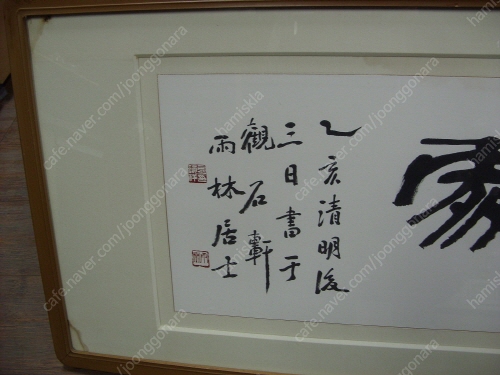 乙亥清明後
三日書于
觀石軒
雨林居士
cafe.naver.com/joonggonara
hamiskla